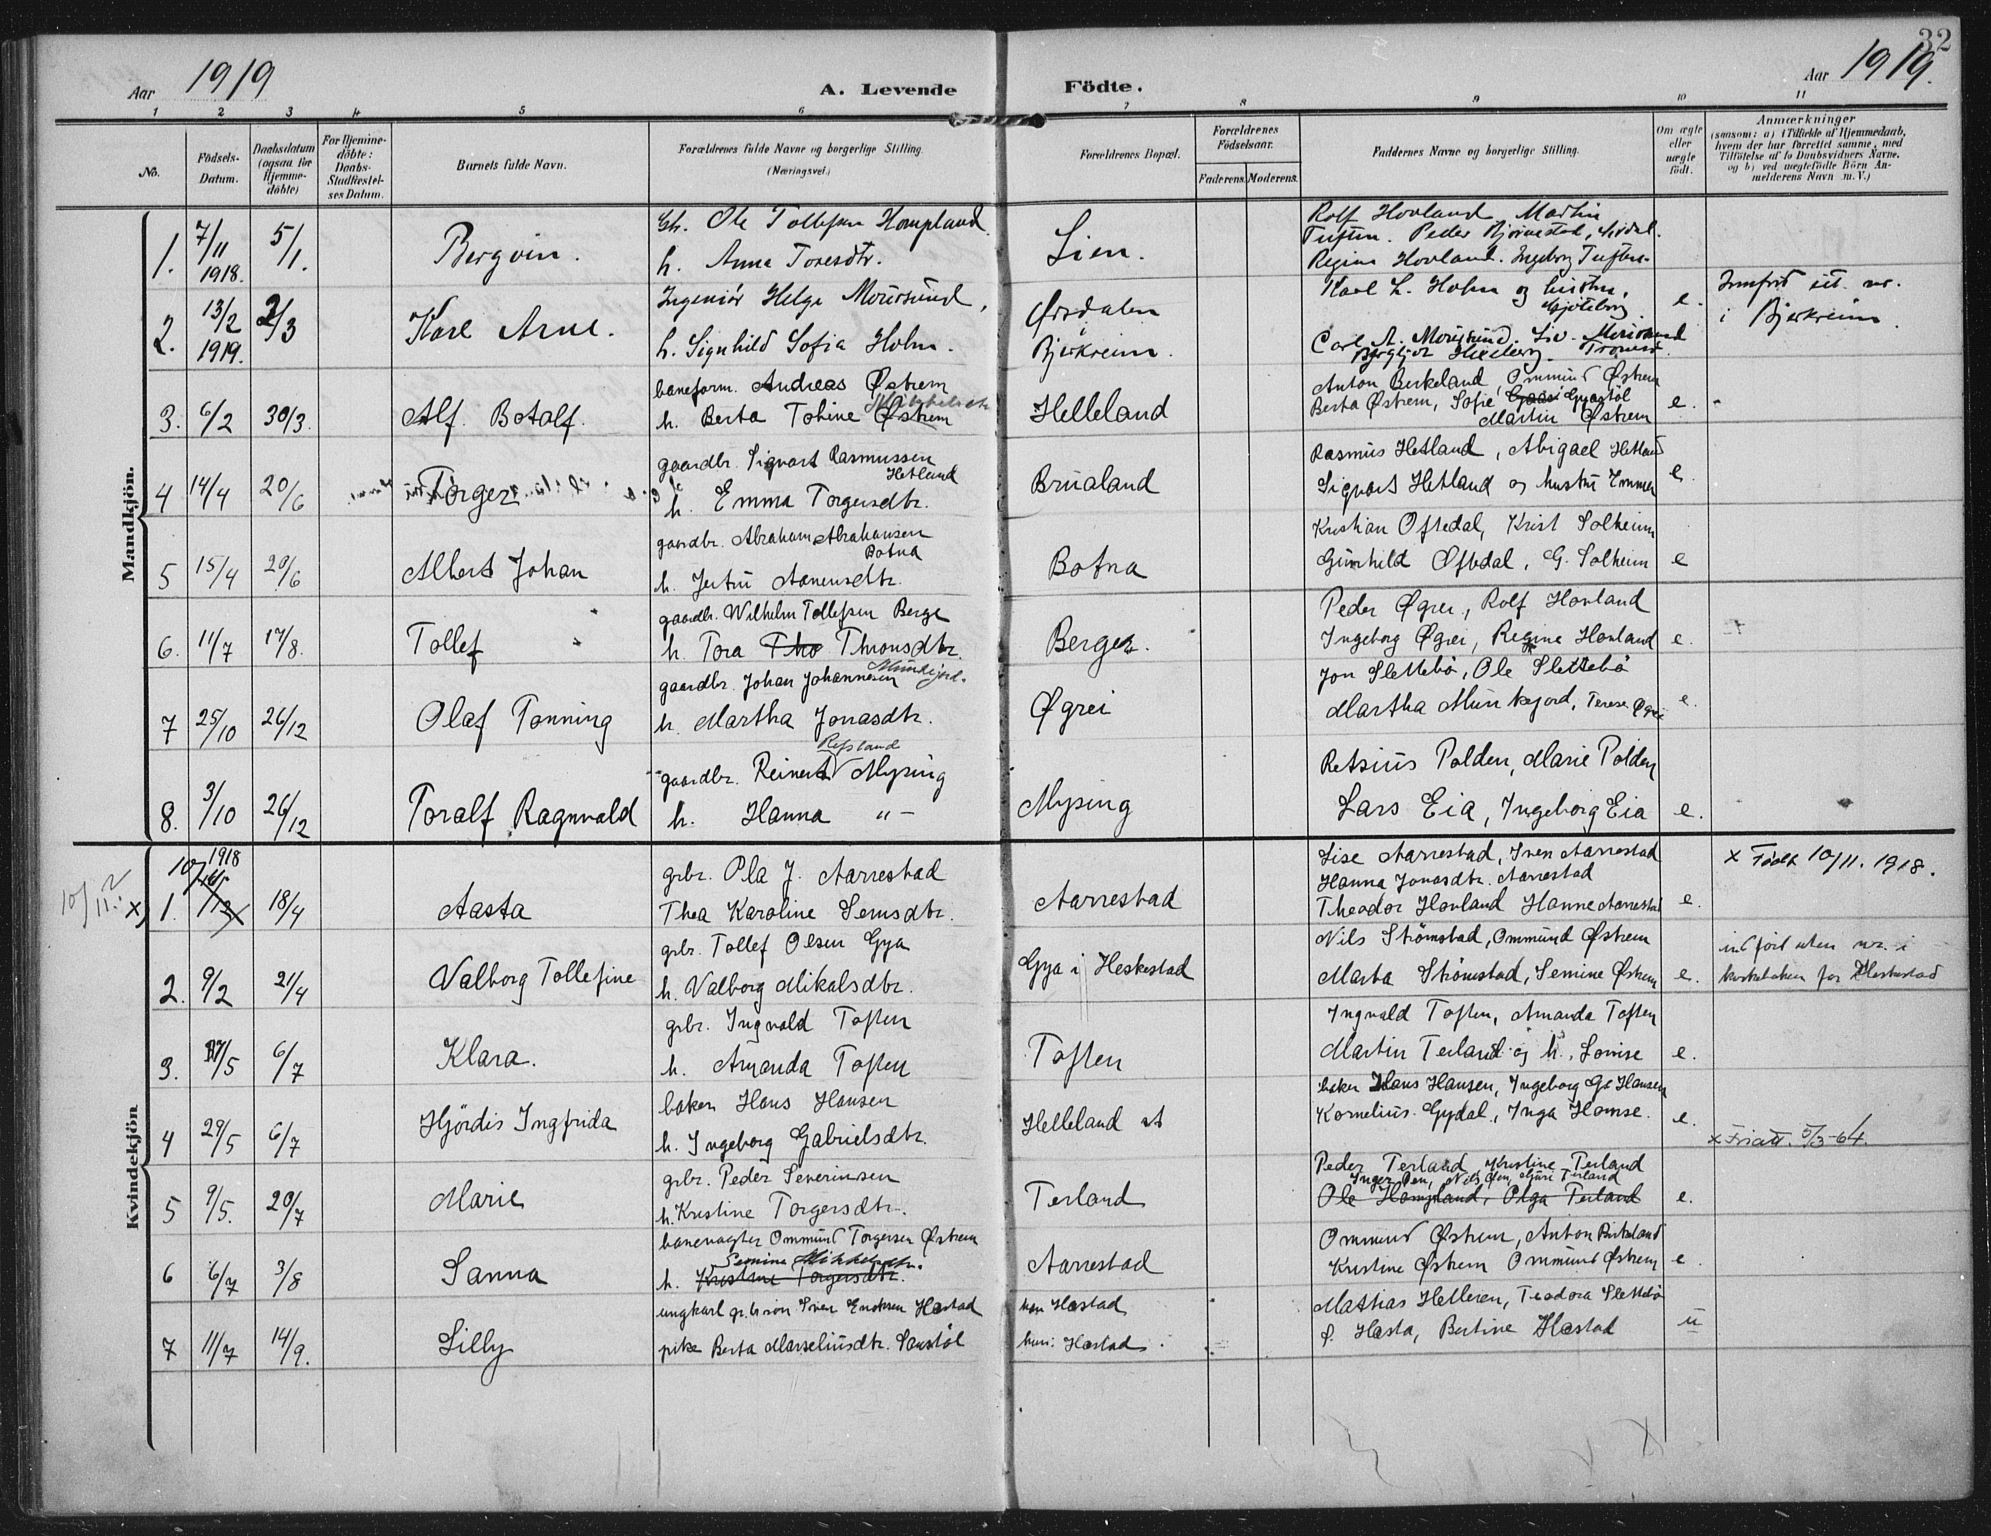 32
Aar 1919
A. Levende Födte.
Aar 1919.
1 2 3 4 5 6 7 8 9 10 11
No.
Födsels-
Datum.
Daabsdatum
(ogsaa för
Hjemme-
döbte)
For Hjemme-
döbte:
Daabs-
Stadfæstel-
ses Datum.
Barnets fulde Navn.
Forældrenes fulde Navne og borgerlige Stilling.
(Næringsvei.)
Forældrenes Bopæl.
Forældrenes
Födselsaar.
Faderens. Moderens.
Faddernes Navne og borgerlige Stilling.
Om ægte
eller
uægte
födt.
Anmærkninger
(saasom: a) i Tilfælde af Hjemmedaab,
hvem der har forrettet samme, med
Tilföielse af to Daabsvidners Navne,
og b) ved uægtefödte Börn An-
melderens Navn m. V.)
Mandkjön.
1. 7/11 1918. 5/1. Bergvin.
Ole Tollefsen Hompland.
h. Anna Toresdtr.
Lien.
Rolf Hovland Martin
Tuften. Peder Bjørnestad, Sirdal.
Regine Hovland. Ingeborg Tuften.
2. 13/2 1919. 2/3 Karl Arne.
Ingeniør Helge MourSund,
h. Signhild Sofia Holm.
Ørsdalen
Bjerkreim.
Karl L. Holm og hustru,
Gjøteborg.
Carl A. Moursund. Liv Moursund
Bergljot Hielberg. Tromsø.
e.
Innført uit. nr.
i Bjerkreim.
3. 6/2 30/3. Alf Botolf.
baneform. Andreas Østrem
h. Berta Tobine Østrem
Helleland
Anton Birkeland, Ommund Østrem
Berta Østrem, Sofie Gyastøl
Martin Østrem
e.
4 14/4 20/6 Torger
gaardbr. Sigvart Rasmussen
Hetland
h. Emma Torgersdtr.
Brualand
Rasmus Hetland, Abigael Hetland
Sigvart Hetland og hustru Emma
e
5 15/4 29/6 Albert Johan
gaardbr. Abraham Abrahamsen
Botna
h. Jertru Aanensdtr.
Botna
Kristian Oftedal, Krist Solheim
Gunhild Oftedal, G. Solheim
e
6. 11/7 17/8. Tollef
gaardbr. Wilhelm Tollefsen Berge
h. Tora Tho Thronsdtr.
Berge.
Peder Øgrei, Rolf Hovland
Ingeborg Øgrei, Regine Hovland
e.
7 25/10 26/12 Olaf Tonning
gaardbr. Johan Johannesen Munkejord.
h. Martha Jonasdtr.
Øgrei
Jon Slettebø, Ole Slettebø
Martha Munkejord, Terese Øgrei
e.
8. 3/10 26/12 Toralf Ragnvald
Refsland
gaardbr. Reinert Mysing
h. Hanna " -
Mysing
Retsius Polden, Marie Polden
Lars Eia, Ingeborg Eia
e.
Kvindekjön
10/11. x) 1. 10/11 1918 18/4 Aasta
grbr. Ola J. Aarrestad
Thea Karoline Semsdtr.
Aarrestad
Lise Aarrestad, Sven Aarrestad
Hanna Jonasdtr. Aarrestad
Theodor Hovland Hanne Aarrestad
e.
x Født 10/11. 1918.
2. 9/2 21/4 Valborg Tollefine
grbr. Tollef Olsen Gya
h. Valborg Mikalsdtr.
Gya i Heskestad
Nils Strømstad, Ommund Østrem
Marta Strømstad, Semine Østrem
e.
indført uten nr. i
kirkeboken for Heskestad
3. 17/5 6/7 Klara.
grbr. Ingvald Toften
h. Amanda Toften
Toften
Ingvald Toften, Amanda Toften
Martin Terland og h. Lovise
e.
4 29/5 6/7 Hjördis Ingfrida
baker Hans Hansen
h. Ingeborg Gabrielsdtr.
Helleland st
baker Hans Hansen, Ingeborg Ga Hansen
Kornelius Gydal, Inga Homse.
e.
x Friatt. 5/3-64.
5 9/5. 20/7 Marie
grbr. Peder Severinsen
h. Kristine Torgersdtr.
Terland
Peder Terland, Kristine Terland
Inger Ren, Nils Olsen, Guri Terland
Ole Hompland, Olga Terland
e.
6 6/7 3/8 Sanna
banevogter Ommund Torgersen Østrem
Semine Mikkelsdtr.
h. Kristine Torgersdtr.
Aarrestad
Ommund Østrem, Anton Birkeland
Kristine Østrem Ommund Østrem
e
7 11/7 14/9. Lilly
ungkarl gr.br.søn Sven Enoksen Hæstad
pike Berta Marseliusdtr. Saustøl
han Hæstad
hun: Hæstad
Mathias Helleren, Teodora Slettebø
f. Hæsta, Bertine Hæstad
u